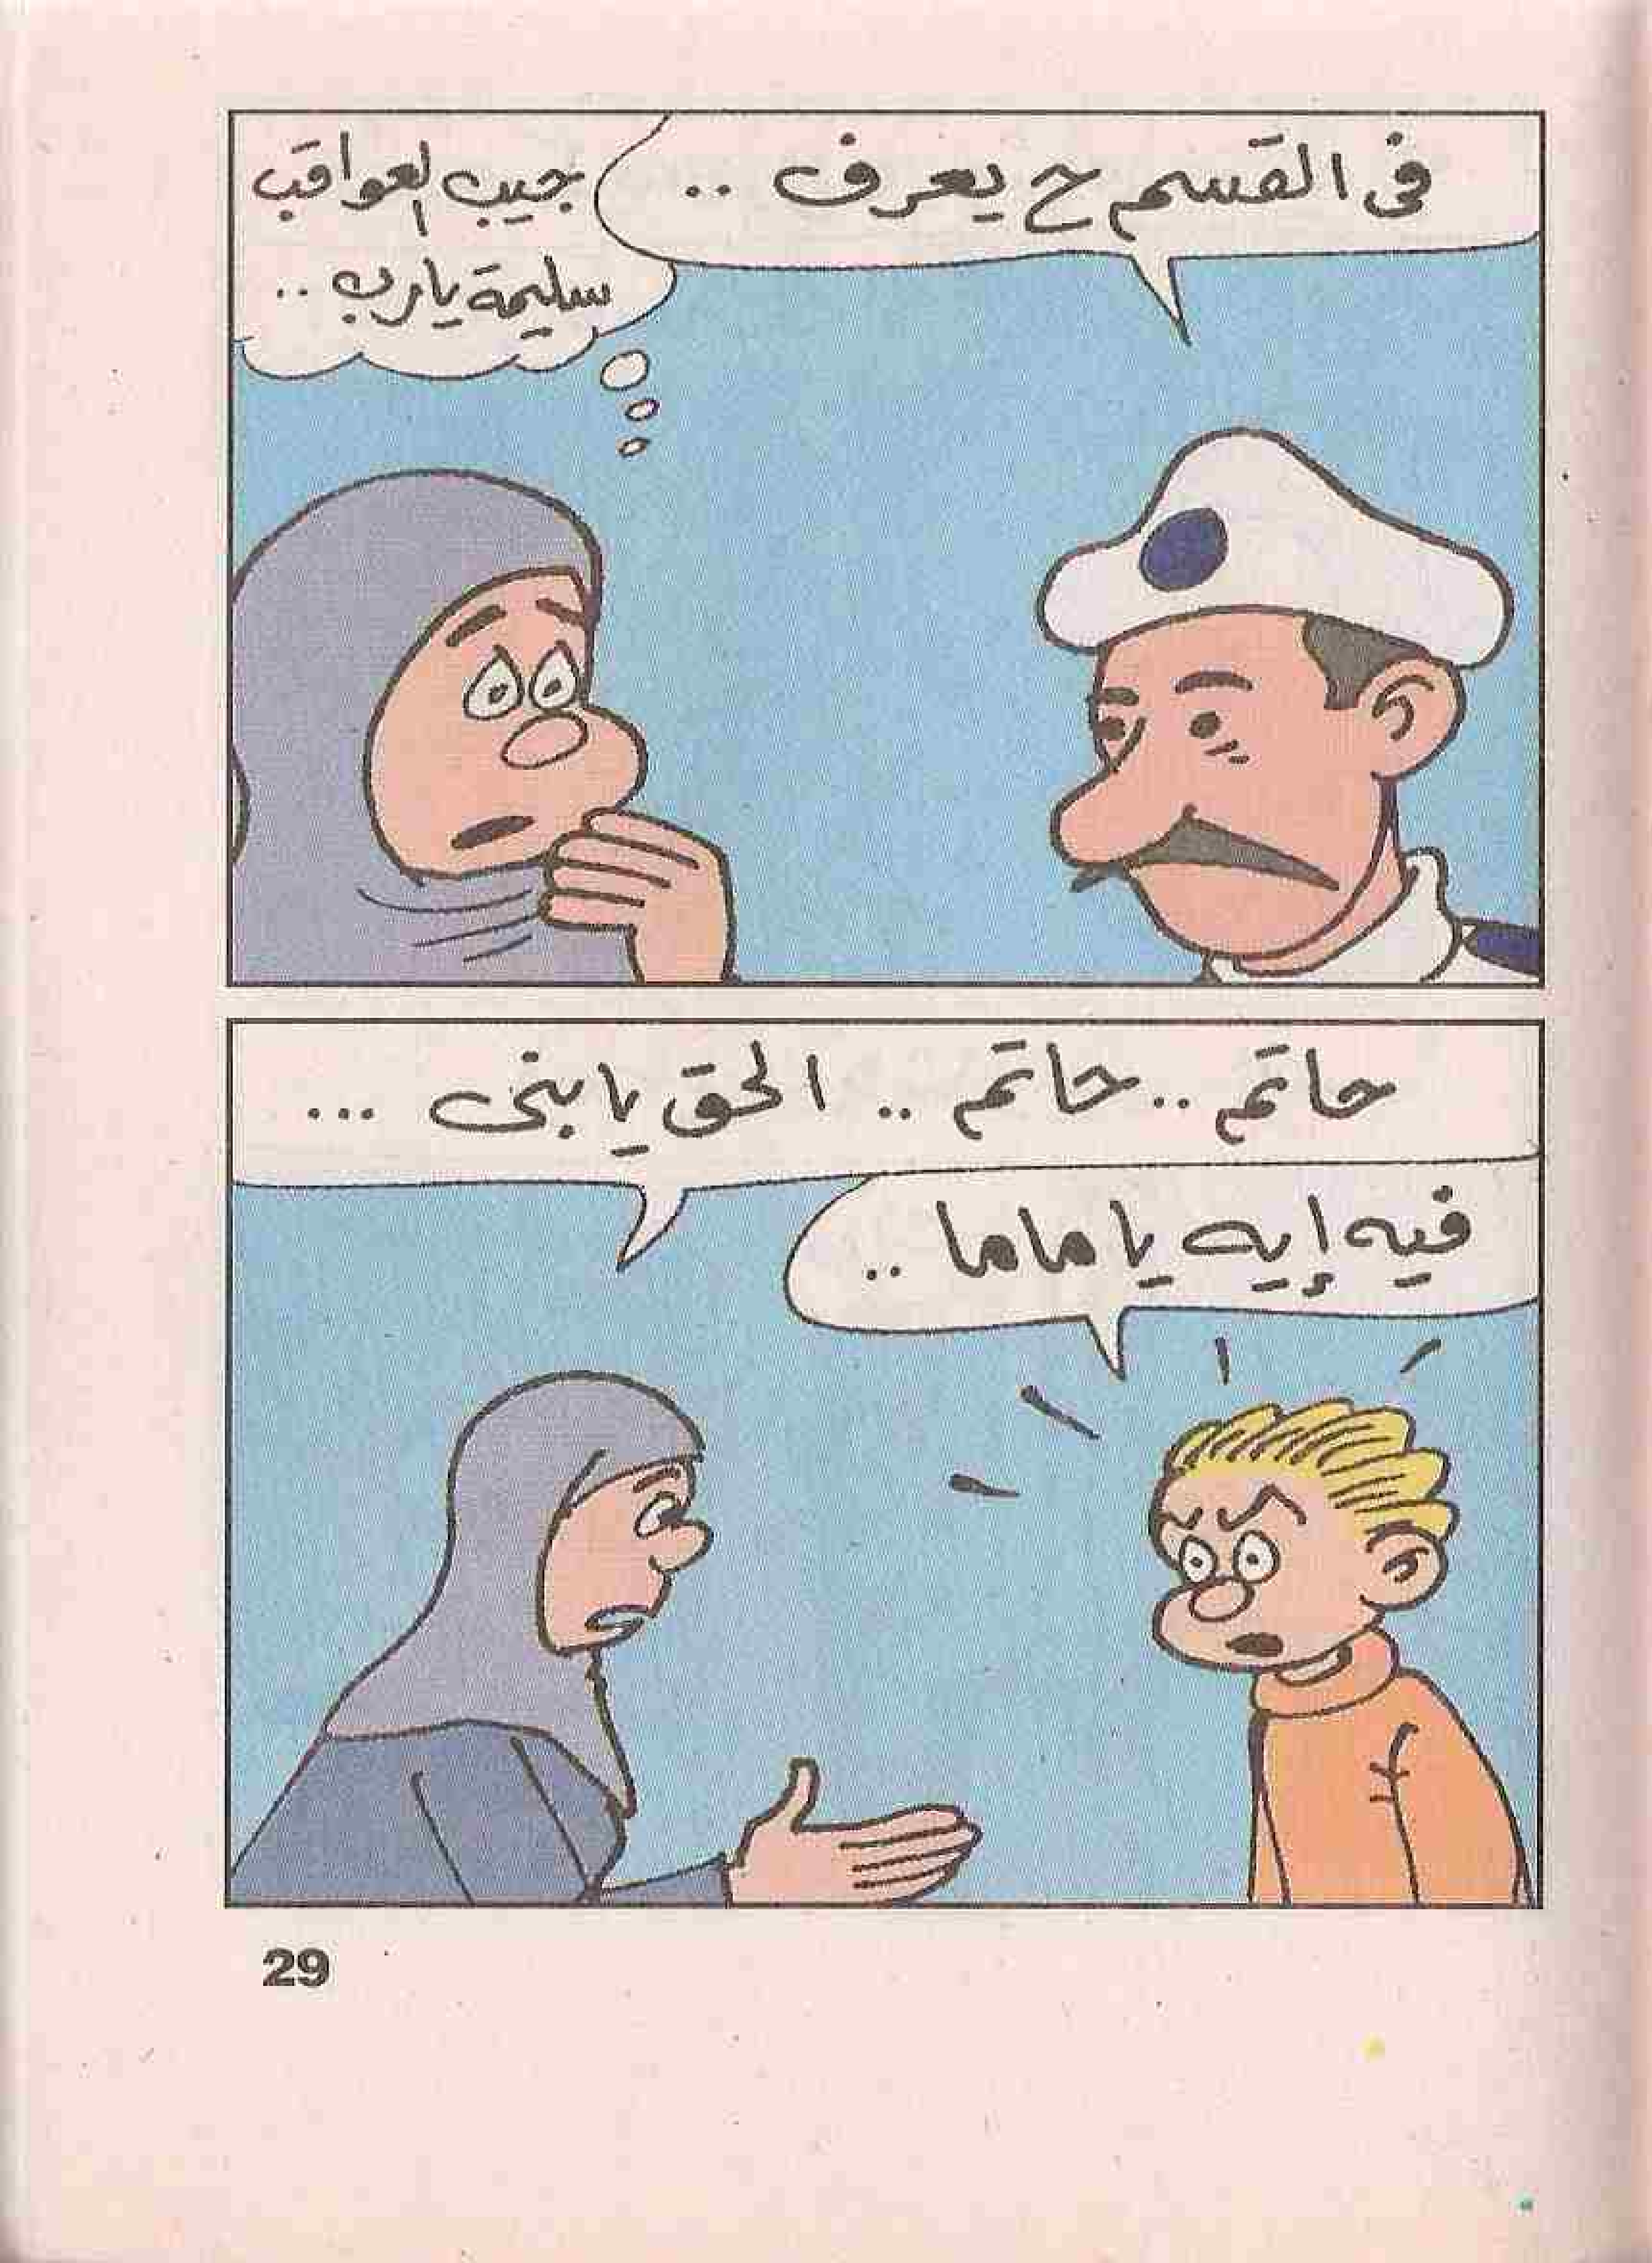 فى القسم ح يعرف ..
جيب العواقب
سليمة يارب ..
حاتم .. حاتم .. الحق يا بنى ...
فيه إيه يا ماما ..
29